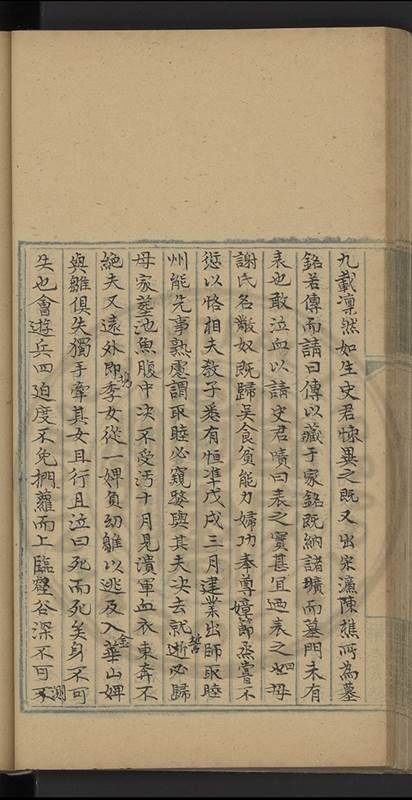 九載凜然如生史君悚異之既又出宋濂陳樵所為墓
銘若傳而請曰傳以藏于家銘既納諸壙而墓門未有
表也敢泣血以請史君嘖曰表之實甚宜迺表之曰母
謝氏名黻奴既歸吳食貧能力婦功奉尊嫜節烝嘗不
愆以恪相夫教子悉有恒準戊戌三月建業出師取睦
州能先事熟慮謂取睦必窺婺與其夫決去就誓逝必歸
母家塟池魚腹中決不受汚十月見潰軍血衣東奔不
絕夫又遠外即挐季女從一婢負幼雛以逃及入金華山婢
與雛俱失獨手牽其女且行且泣曰死而死矣身不可
失也會遊兵四迫度不免捫蘿而上臨壑谷深不可測